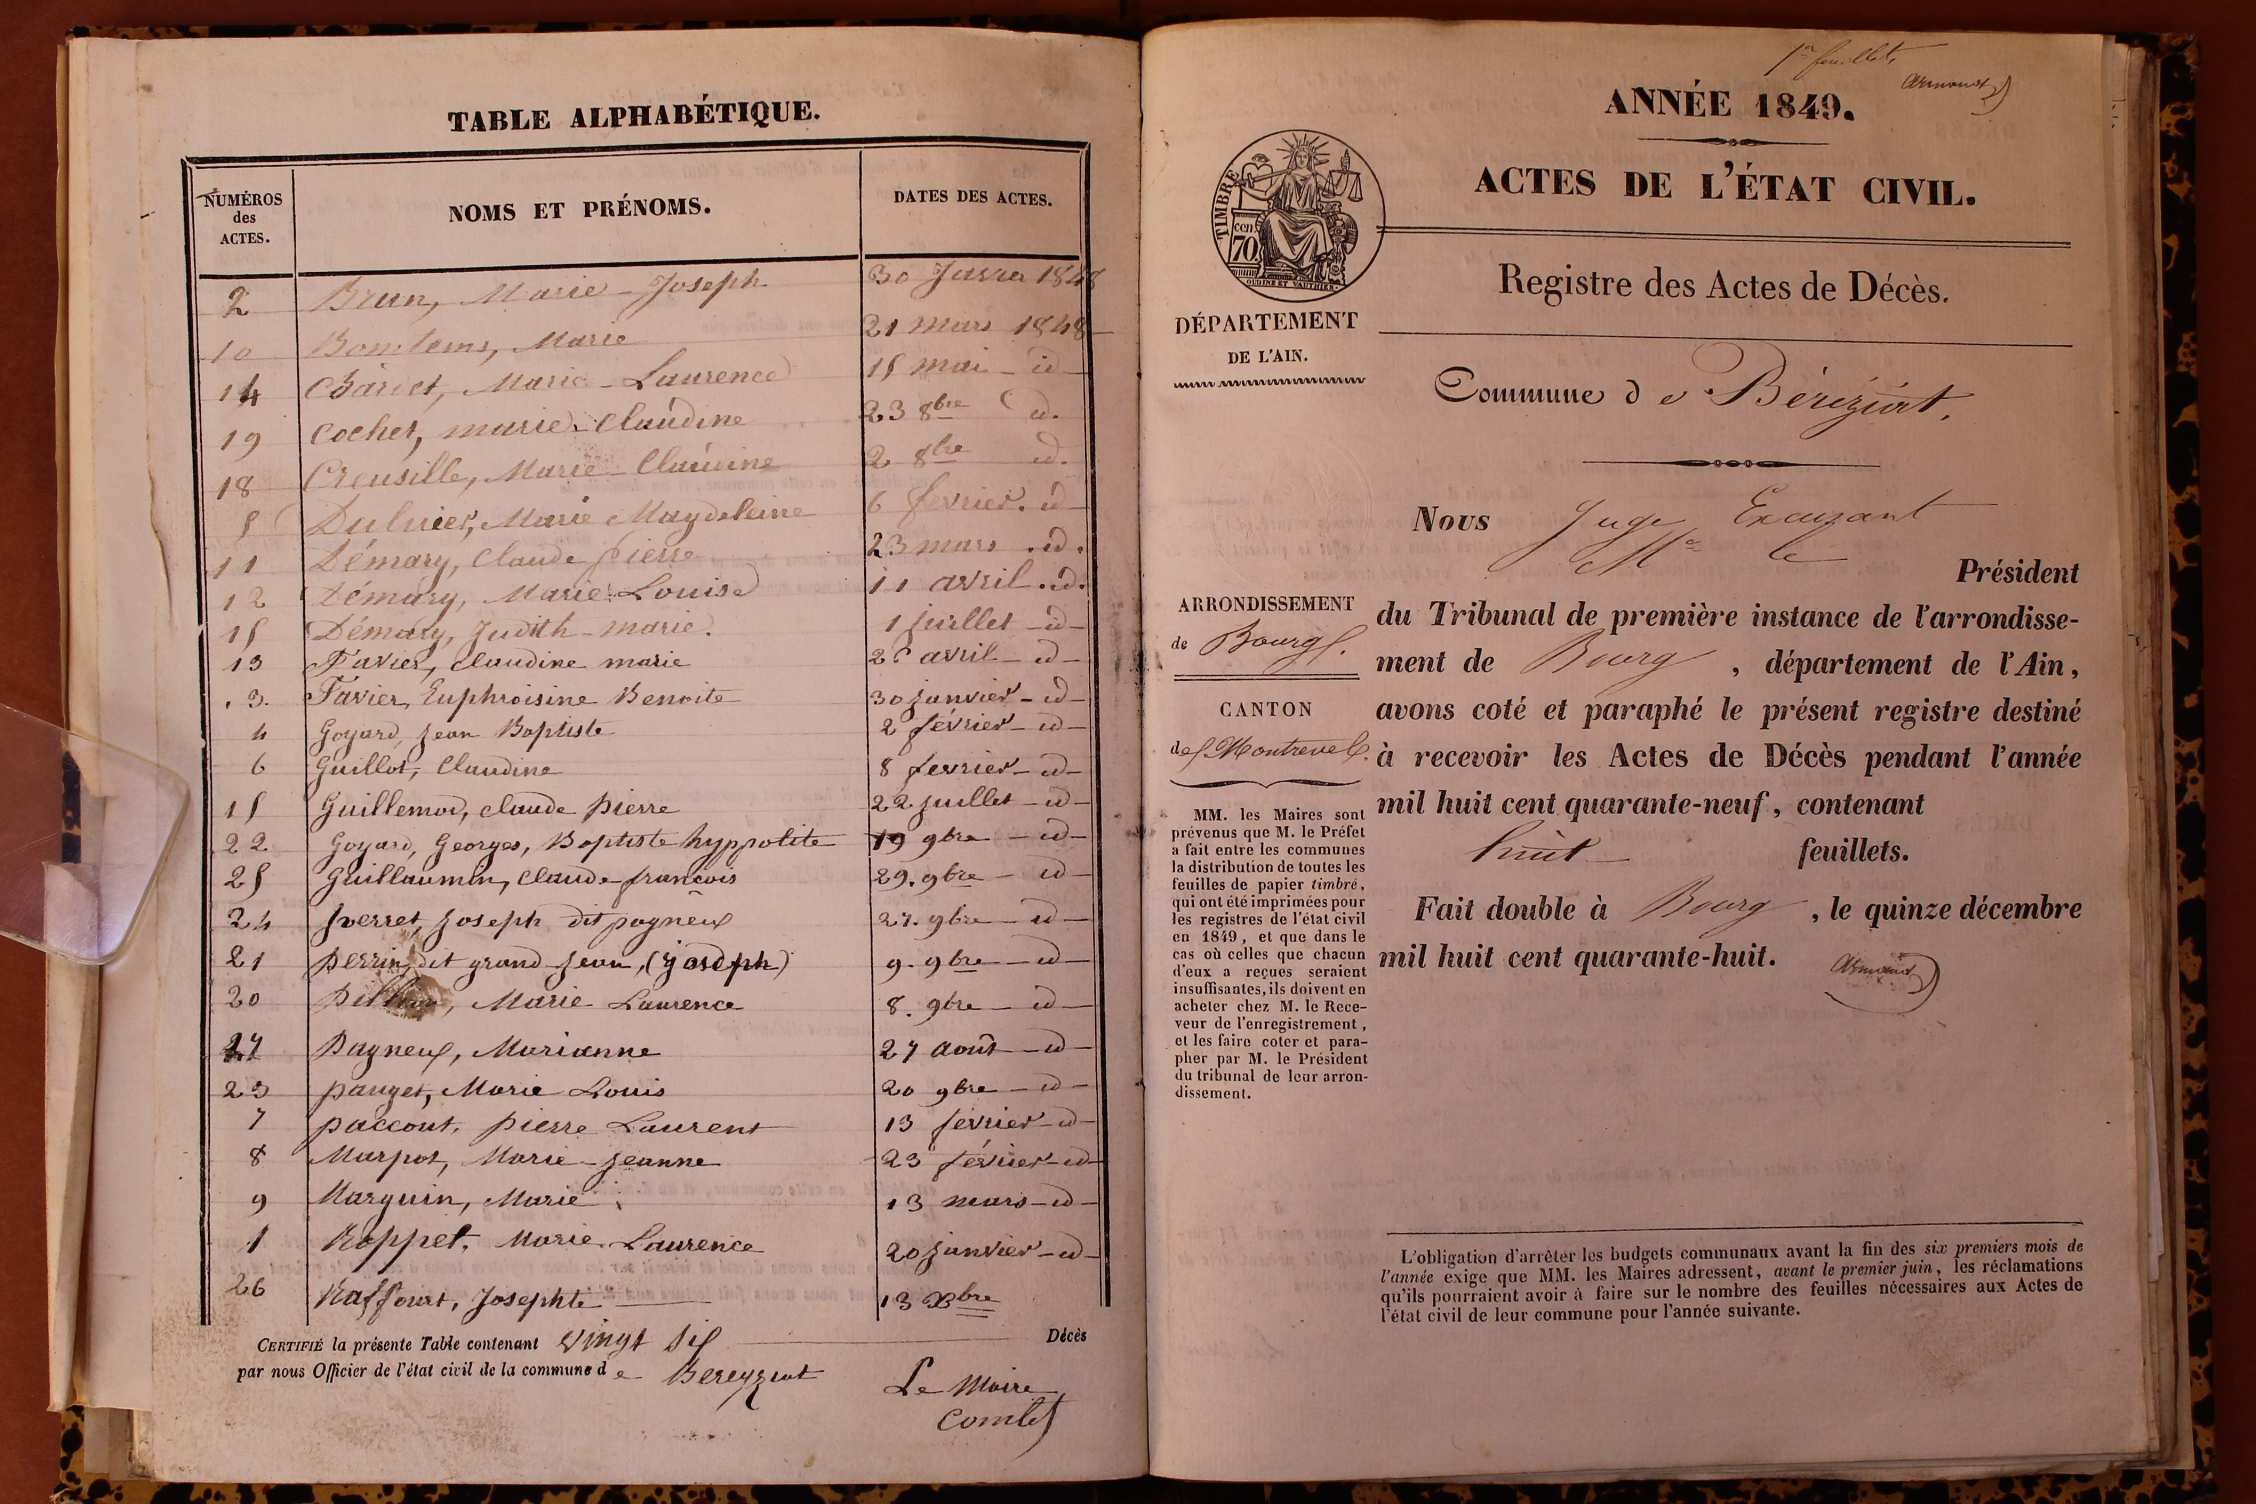 TABLE ALPHABÉTIQUE.
NUMÉROS des ACTES. NOMS ET PRÉNOMS. DATES DES ACTES.
2 Brun, Marie-Joseph 30 Janvier 1848
10 Bomtems, Marie 21 mars 1848
14 Marie-Laurence 15 mai - id -
19 Cochet, marie-Claudine 23 8bre id.
18 Creusille, Marie-Claudine 2 8bre id.
5 Marie Magdeleine 6 fevrier. id -
11 Démary, Claude pierre 23 mars. id.
12 Démary, Marie-Louise 11 avril. id.
15 Démary, Judith-marie. 1 juillet - id -
13 Favier, Claudine marie avril - id -
3. Favier, Euphroisine Benoite 30 janvier - id -
4 Goyard, Jean Baptiste 2 février - id -
6 Guillot, Claudine 8 fevrier - id -
15 Guillemod, claude pierre 22 juillet - id -
22 Goyard, Georges, Baptiste hyppolite 19 9bre - id -
25 Guillaumin, claude-françois 29. 9bre - id -
24 perret, Joseph dit pagneux 27. 9bre - id -
21 perrin, dit grand-Jean, (joseph) 9. 9bre - id -
20 Marie Laurence 8. 9bre - id -
27 Pagneux, Marianne 27 août - id -
23 pauget, Marie Louis 20 9bre - id -
7 paccout, pierre Laurent 13 février - id -
8 Marpot, Marie-Jeanne 23 février - id -
9 Marguin, Marie 13 mars - id -
1 Roppet, Marie Laurence 20 janvier - id -
26 Raffourt, Josephte 13 Xbre
CERTIFIÉ la présente Table contenant vingt six Décès
par nous Officier de l'état civil de la commune de Bereyziat
Le Maire
Comte
1er feuillet.
Armand
ANNÉE 1849.
ACTES DE L'ÉTAT CIVIL.
TIMBRE
70 cen.
OUDINE ET VAUTHIER.
Registre des Actes de Décès.
DÉPARTEMENT
DE L'AIN.
Commune de Béréziat.
Nous Juge Excusant
Mr le
Président
ARRONDISSEMENT
de Bourg.
du Tribunal de première instance de l'arrondisse-
ment de Bourg, département de l'Ain,
avons coté et paraphé le présent registre destiné
à recevoir les Actes de Décès pendant l'année
mil huit cent quarante-neuf, contenant
huit feuillets.
Fait double à Bourg, le quinze décembre
mil huit cent quarante-huit.
Armand
CANTON
de Montrevel.
MM. les Maires sont
prévenus que M. le Préfet
a fait entre les communes
la distribution de toutes les
feuilles de papier timbré,
qui ont été imprimées pour
les registres de l'état civil
en 1849, et que dans le
cas où celles que chacun
d'eux a reçues seraient
insuffisantes, ils doivent en
acheter chez M. le Rece-
veur de l'enregistrement,
et les faire coter et para-
pher par M. le Président
du tribunal de leur arron-
dissement.
L'obligation d'arrêter les budgets communaux avant la fin des six premiers mois de
l'année exige que MM. les Maires adressent, avant le premier juin, les réclamations
qu'ils pourraient avoir à faire sur le nombre des feuilles nécessaires aux Actes de
l'état civil de leur commune pour l'année suivante.